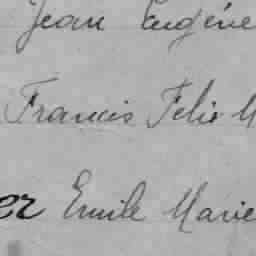 Jean Eugène
Francis Felix M
er Emile Marie